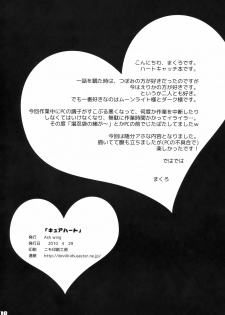 こんにちわ、まくろです。
ハートキャッチ本です。
一話を観た時は、つぼみの方が好きだったのですが
今はえりかの方が好きです。
というかニ人とも好き。
でも一番好きなのはムーンライト様とダーク様です。
今回作業中にPCの調子がすこぶる悪くなって、何度か作業を中断したり
しなくてはいけなくなり、無駄に作業時間かかってイライラ…。
その度「堪忍袋の緒が～」とかPCの前でじたばたしてましたw
今回は随分アホな内容となりました。
描いてて腹も立ちましたが(PCの具合で)
楽しかったです！
ではでは
まくろ
『キュアハート』
発行 Ash wing
発行日 2010. 4. 29
印刷 ニモ印刷工房
連絡 http://devilkids.easter.ne.jp/
18